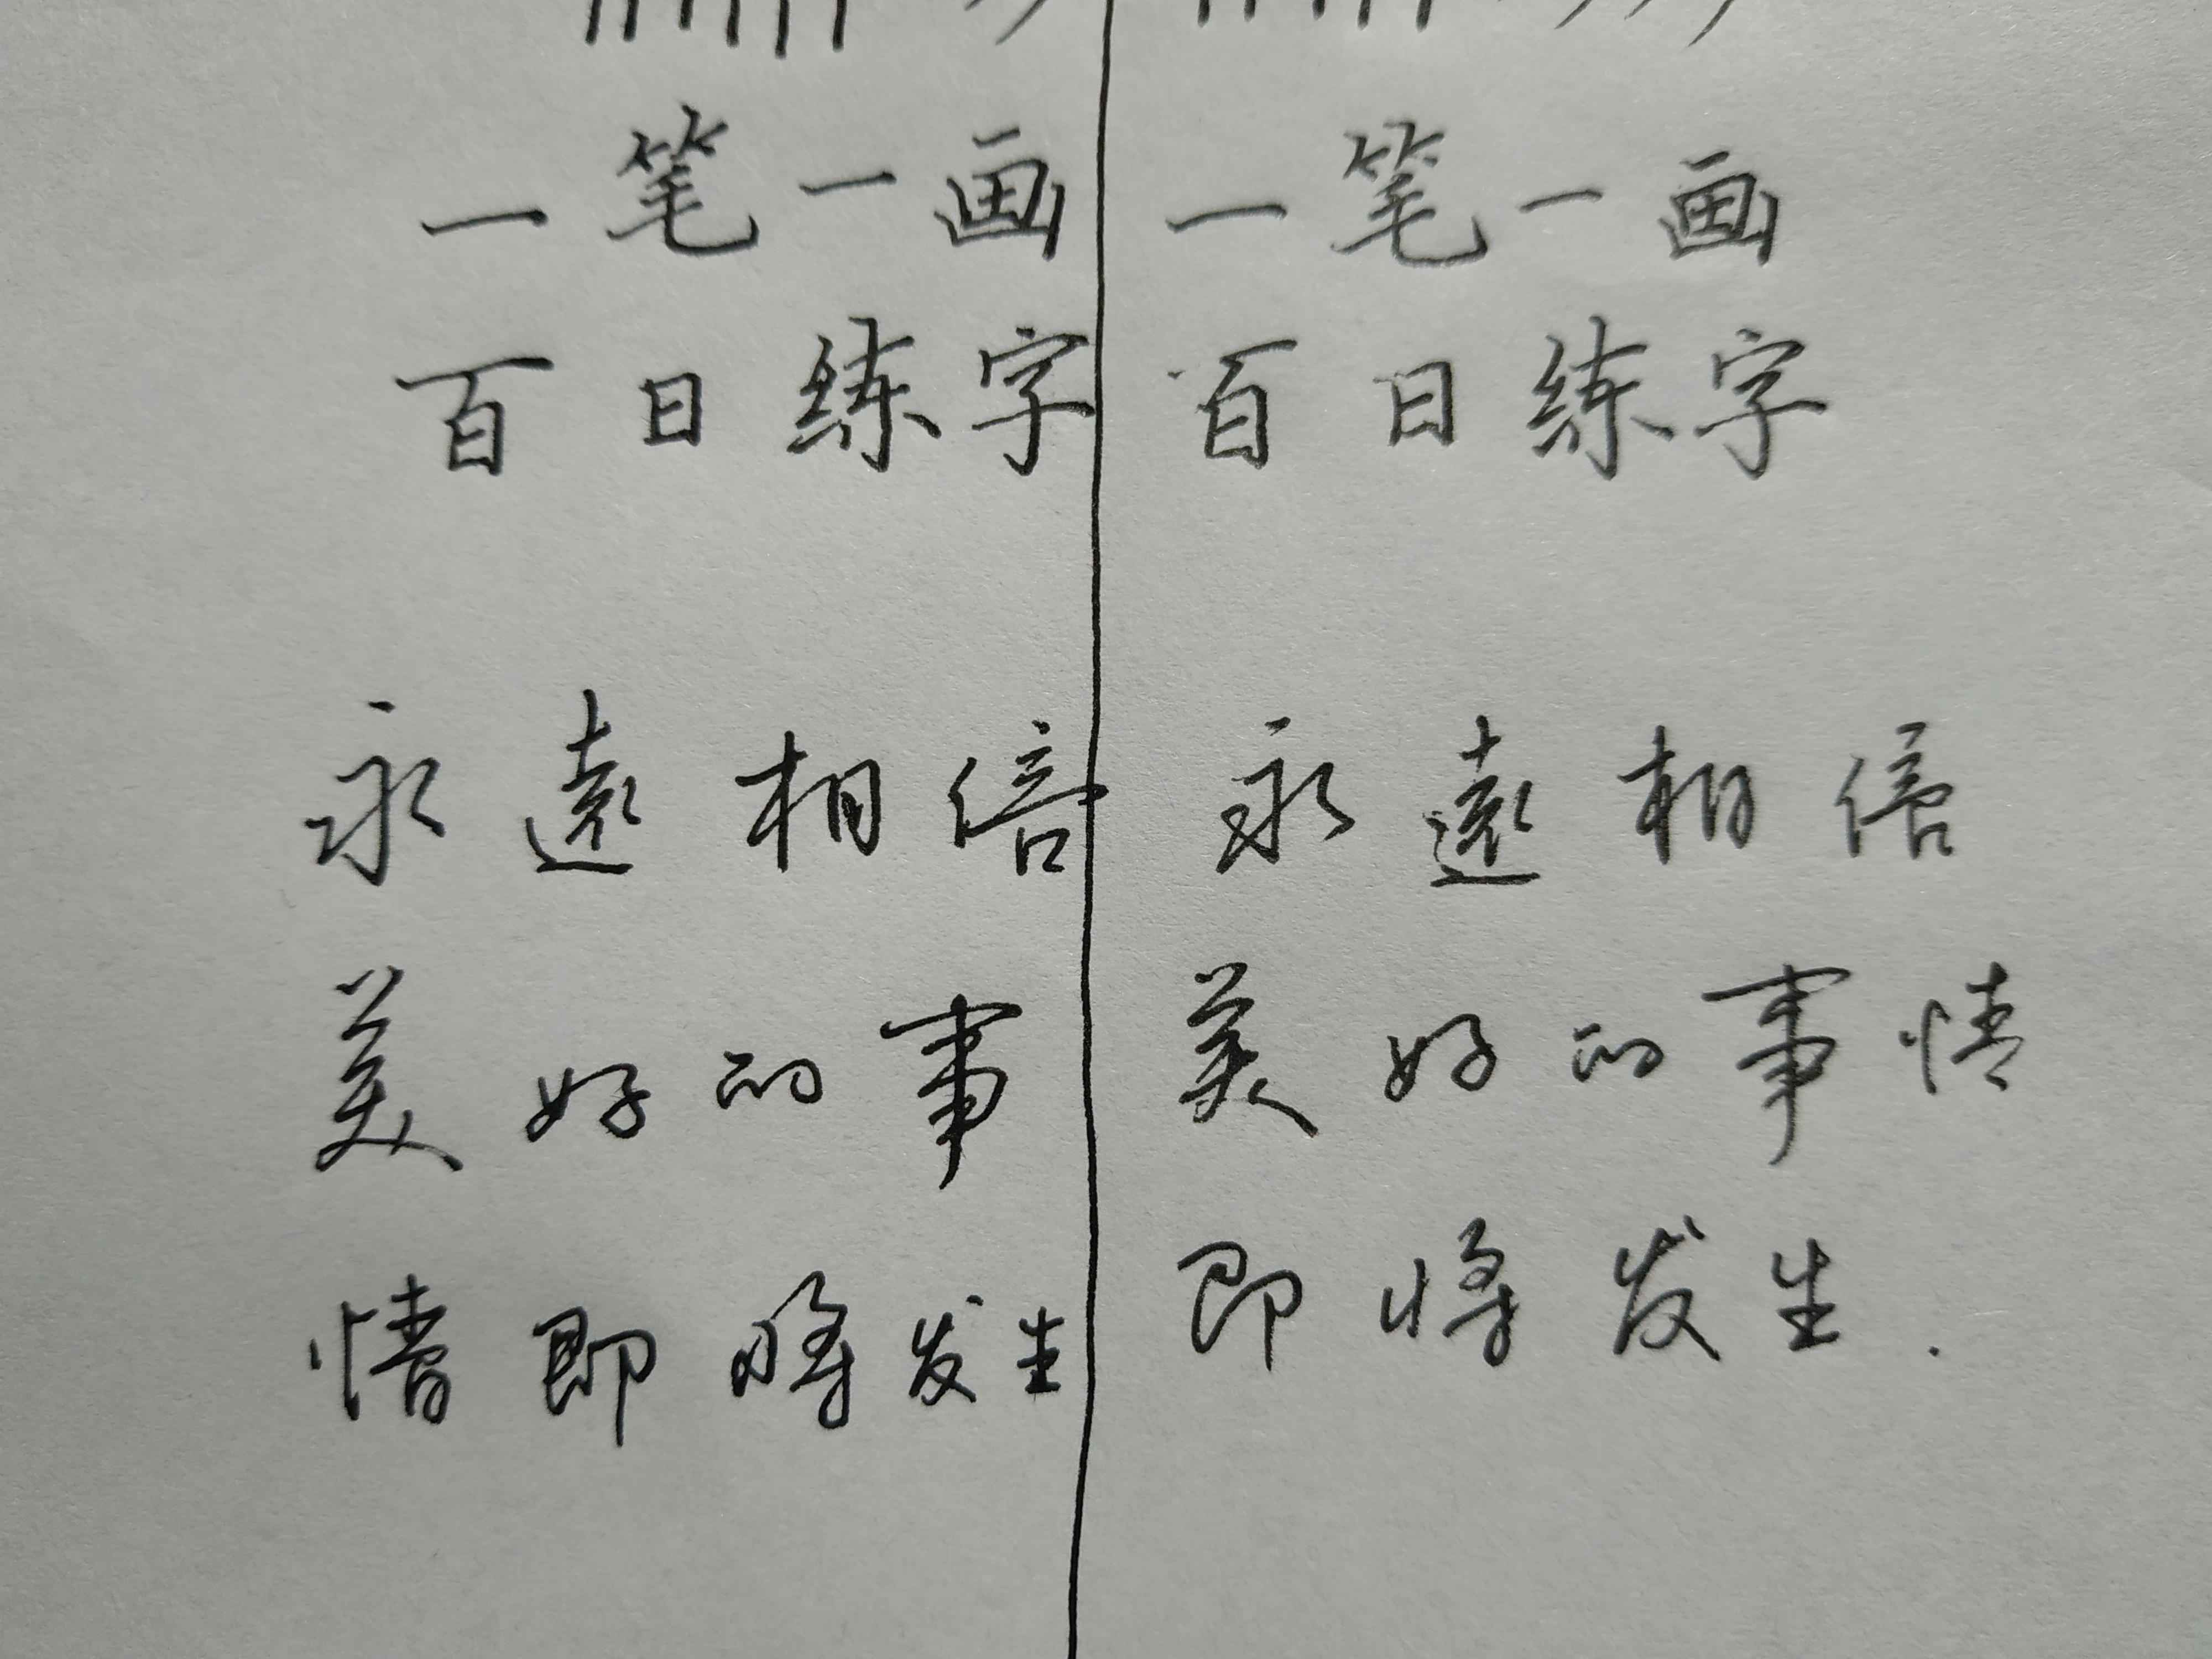 一笔一画
百日练字
永遠相信
美好的事
情即将发生
一笔一画
百日练字
永遠相信
美好的事情
即将发生.